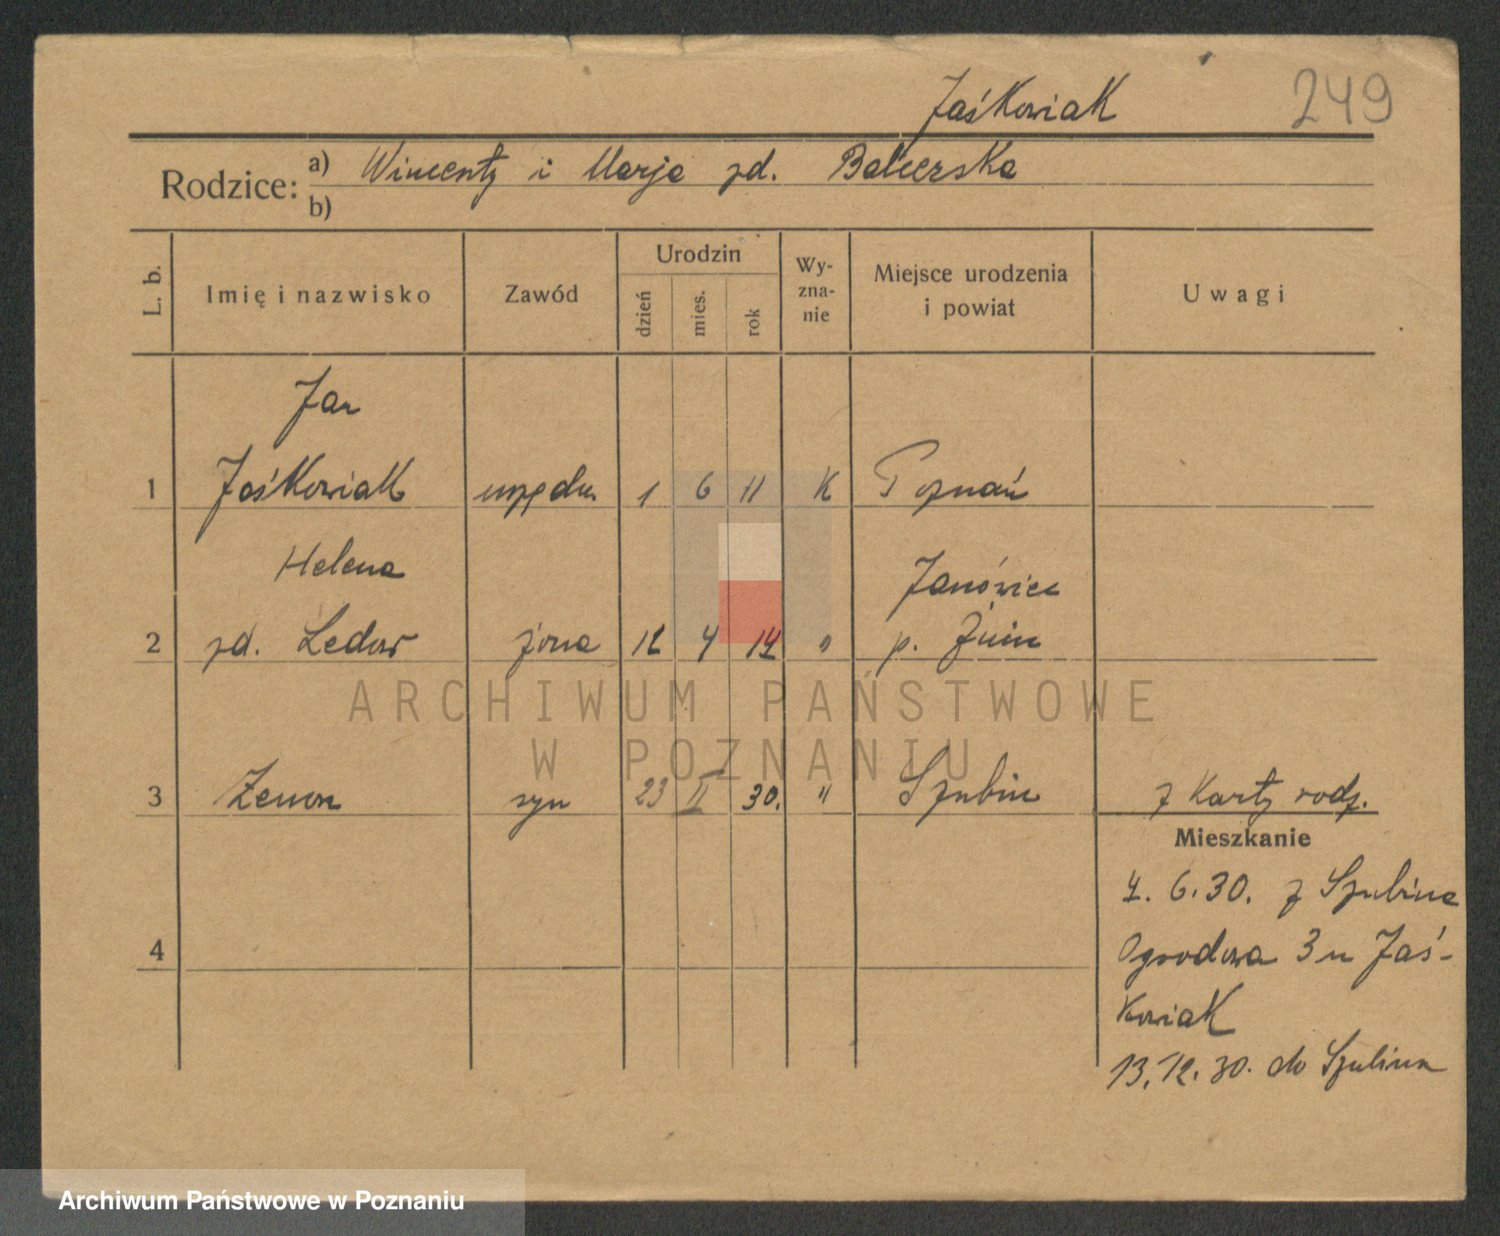 Jaśkowiak 249
Rodzice: a) Wincenty i Marja zd. Balcerska
b)
L. b. Imię i nazwisko Zawód Urodzin dzień mies. rok Wyznanie Miejsce urodzenia i powiat Uwagi
Jan
1 Jaśkowiak urzędn. 1 6 11 K Poznań
Helena Janówiec
2 zd. żona 12 4 14 " p. Żnin
3 Zenon syn 23 II 30. " Szubin z Karty rodz.
Mieszkanie
4. 6. 30. z Szubina
4 Ogrodowa 3 u Jaś-
kowiak
13. 12. 30. do Szubina
ARCHIWUM PAŃSTWOWE
W POZNANIU
Archiwum Państwowe w Poznaniu